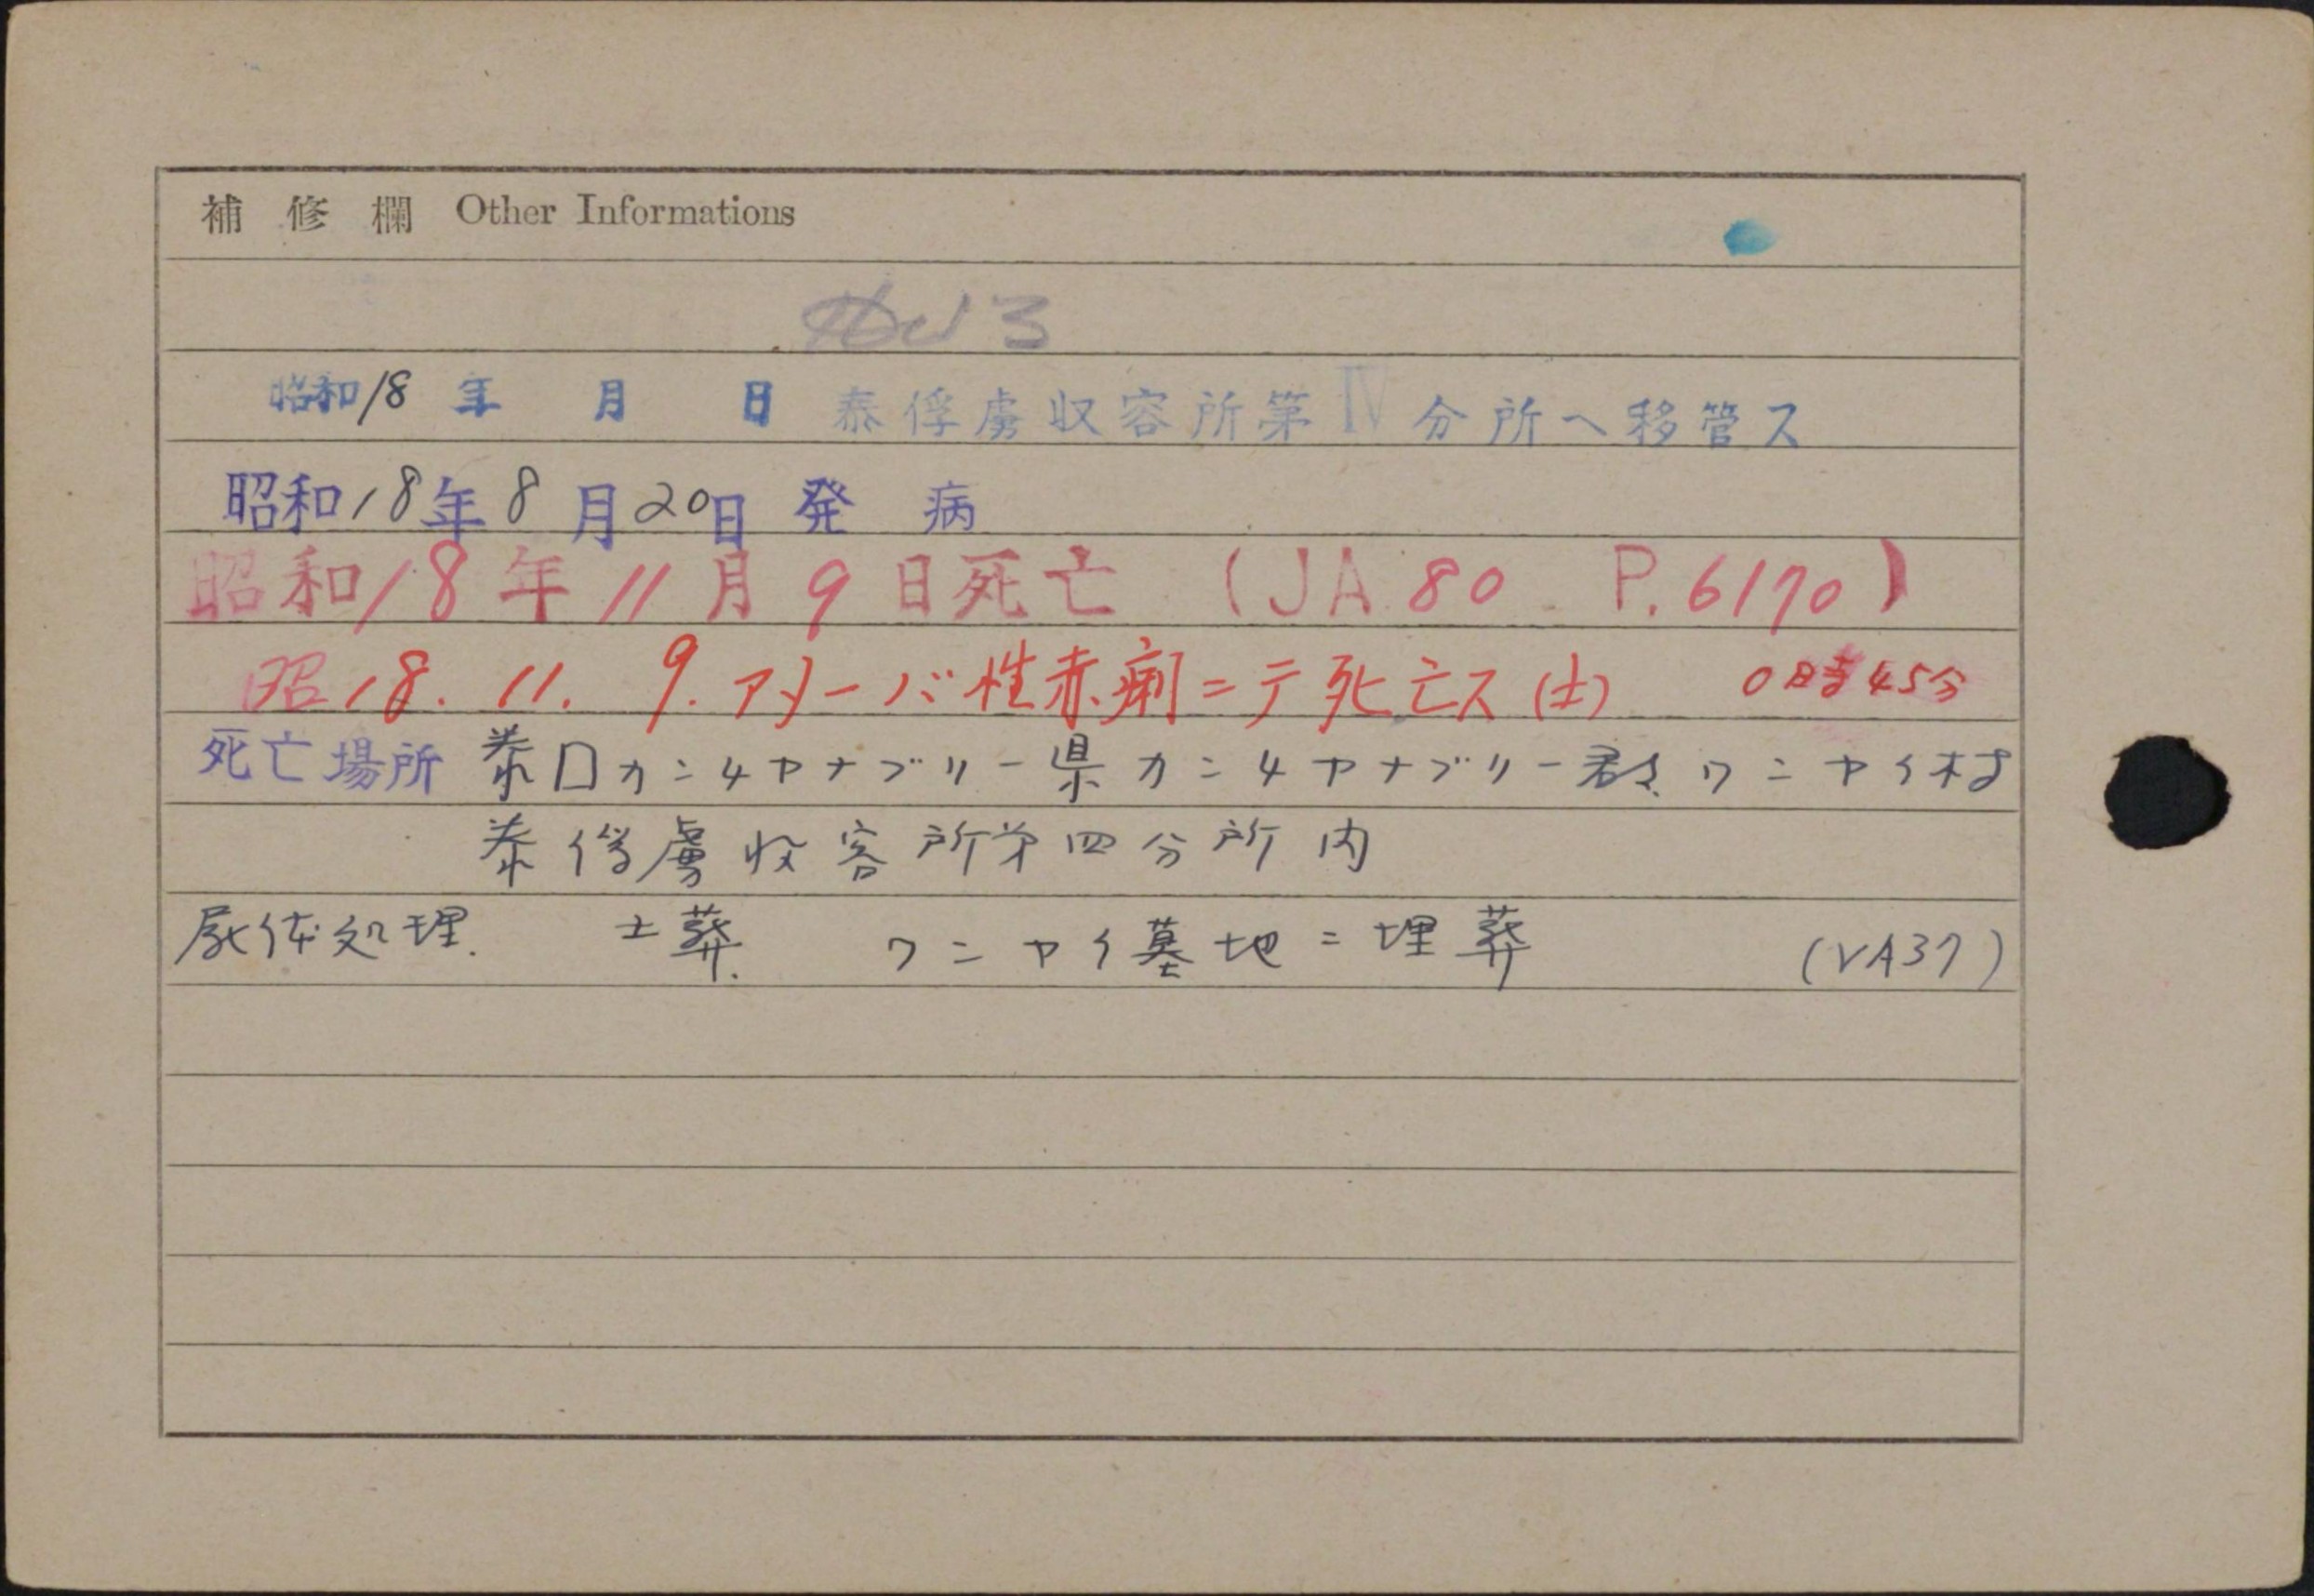 補修欄 Other Informations
3
昭和18年 月 日 泰俘虜収容所第IV分所へ移管ス
昭和18年8月20日 発病
昭和18年11月9日死亡 (JA 80 P.6170)
昭18.11.9.アメーバ性赤痢ニテ死亡ス(土) 0時45分
死亡場所 泰囗カンチヤナブリー県カンチヤナブリー郡ワンヤイ村
泰俘虜収容所第四分所内
屍体処理. 土葬. ワンヤイ墓地ニ埋葬 (VA37)